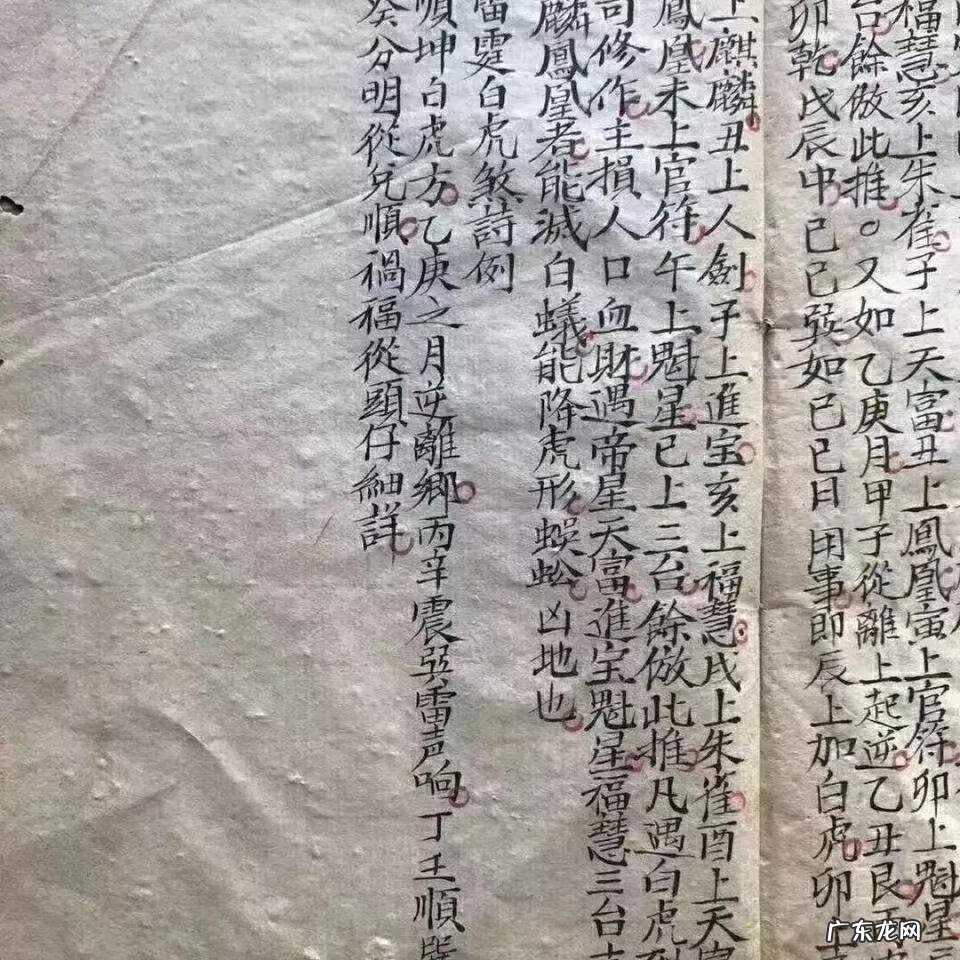 福慧亥上朱雀子上天富丑上鳳凰寅上官符卯上魁星
餘倣此推。又如乙庚月甲子從離上起逆乙丑艮
卯乾戌辰中己巳巽如己巳日用事即辰上加白虎卯上
上麒麟丑上人劍子上進宝亥上福慧戌上朱雀酉上天
鳳凰未上官符午上魁星巳上三台餘倣此推凡遇白虎到
司修作主損人口血財遇帝星天富進宝魁星福慧三台
麟鳳凰者能滅白蟻能降虎形蜈蚣凶地也
雷霆白虎煞詩例
順坤白虎方乙庚之月逆離鄉丙辛震巽雷声响丁壬順
癸分明從兌順禍福從頭仔細詳
广东龙网